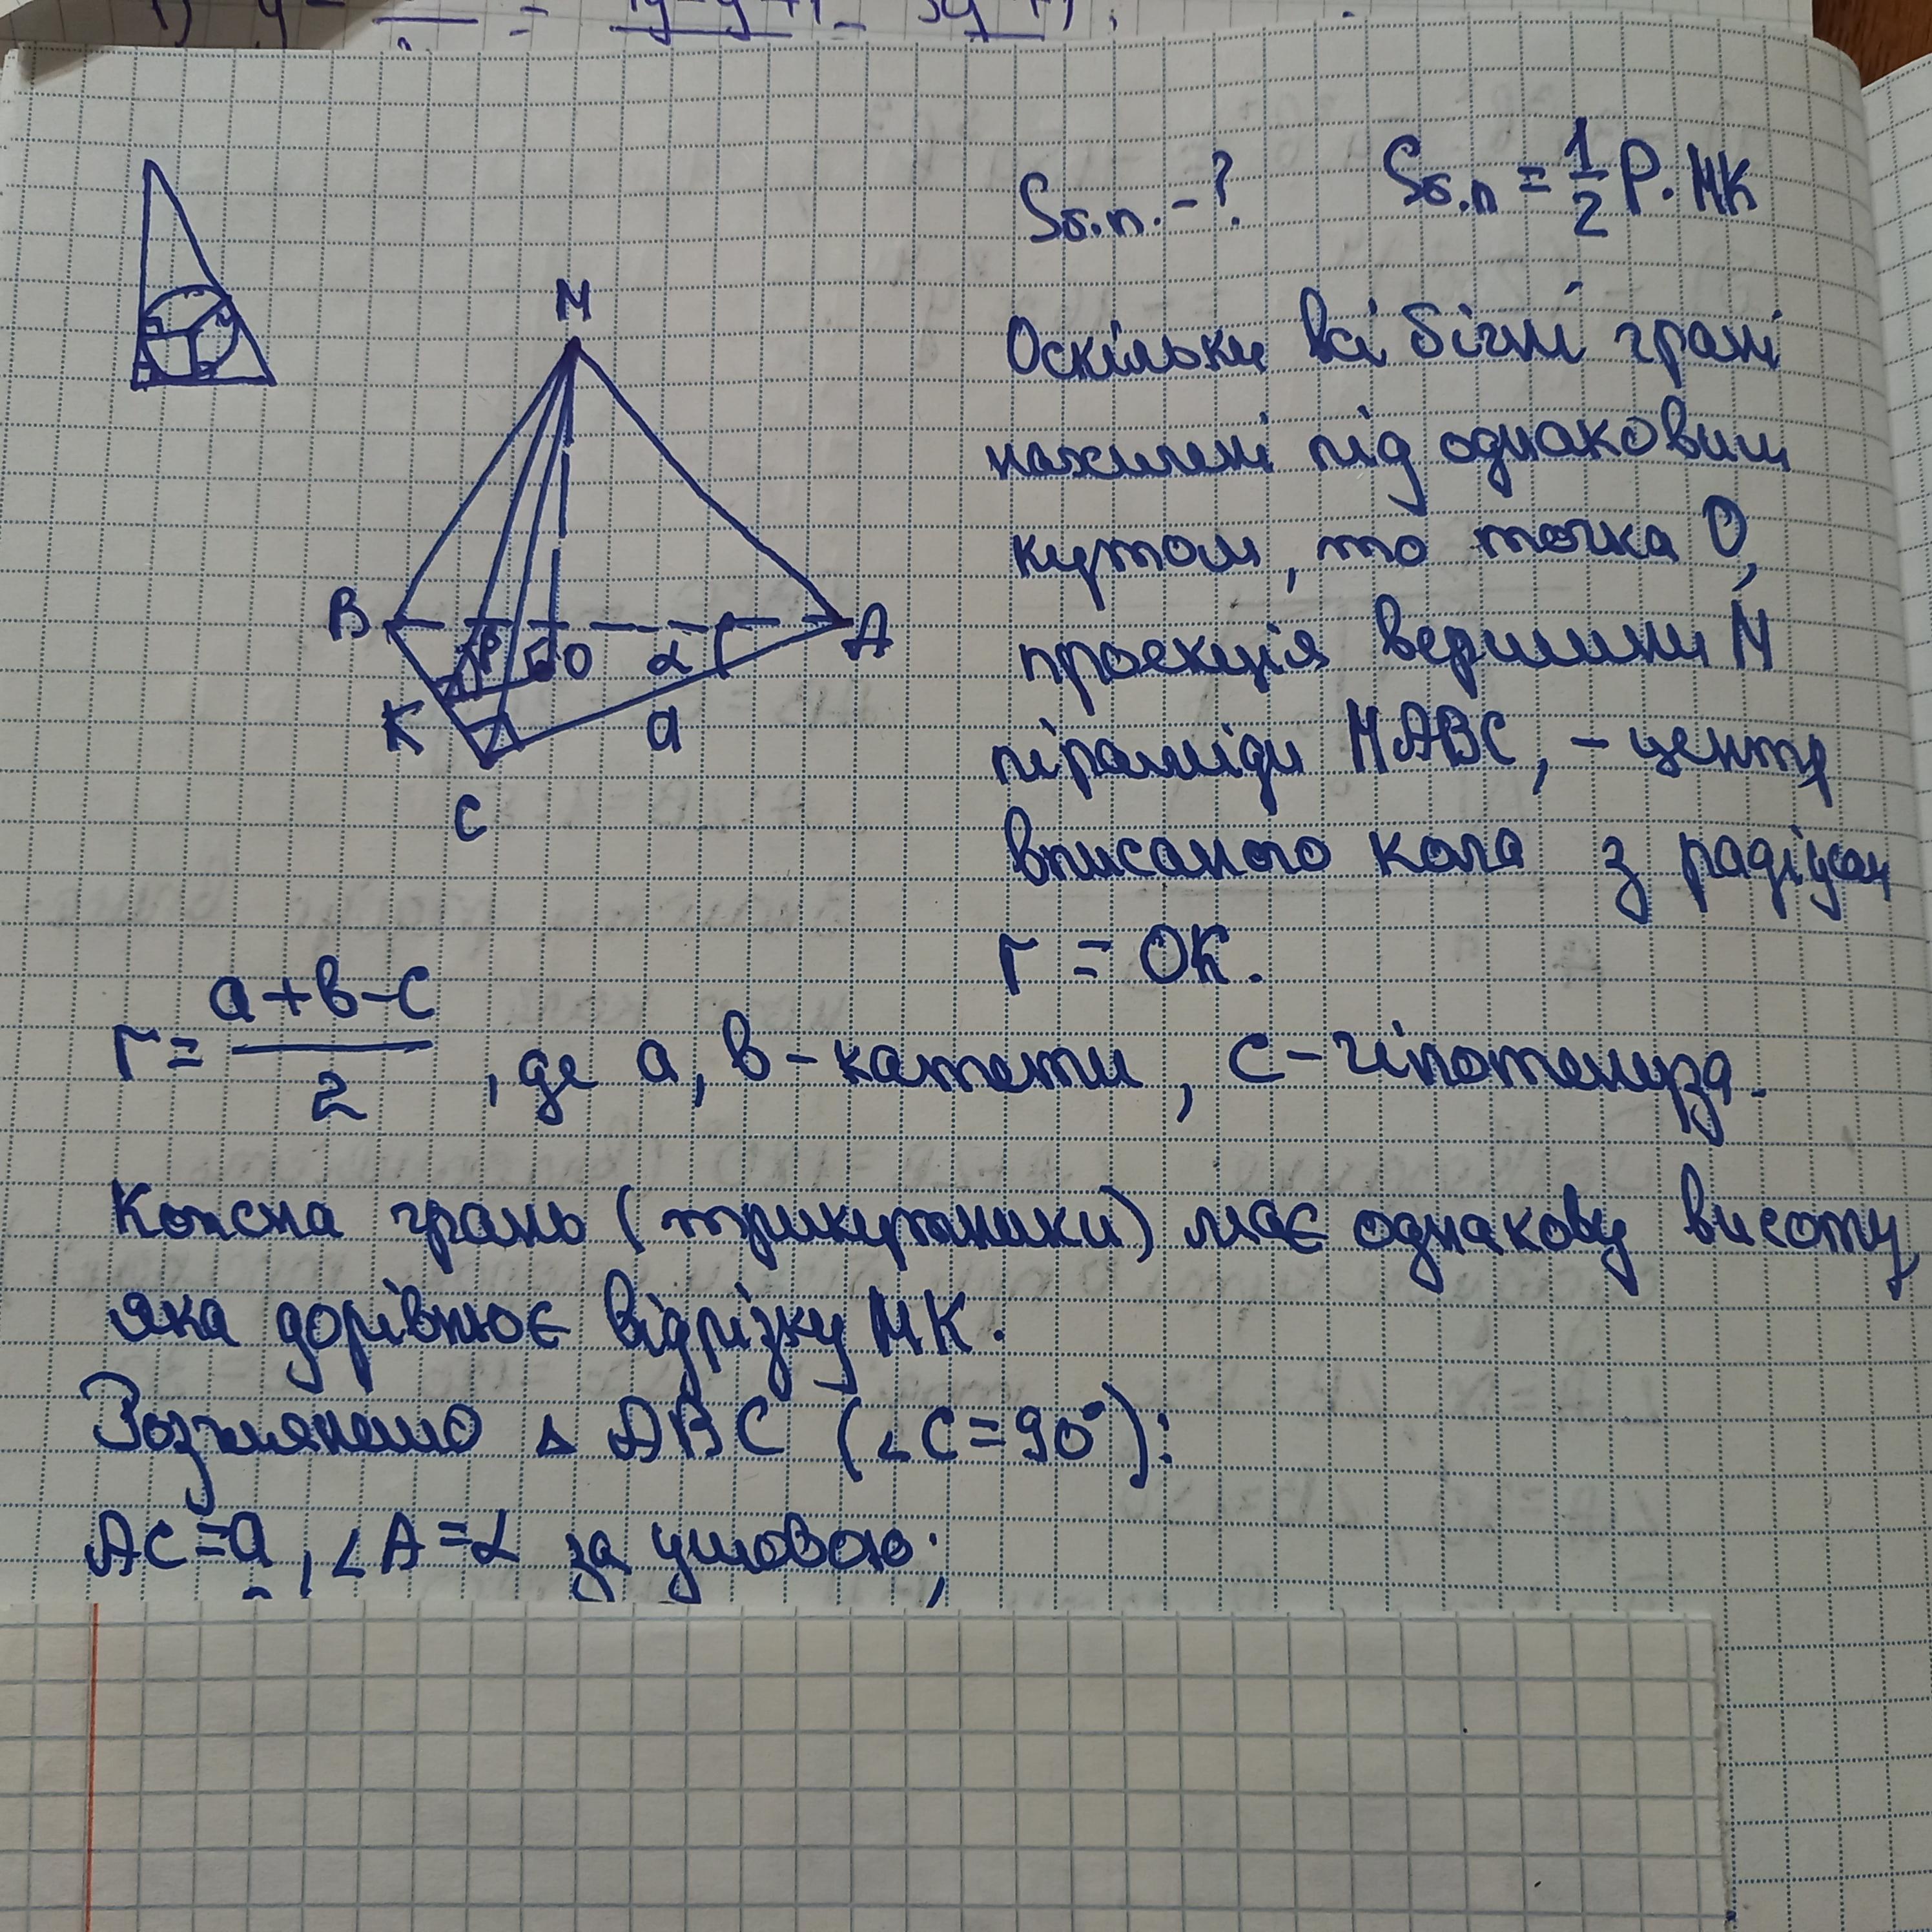 M
B
A
P
O
α
K
a
C
Sб.п. - ?
Sб.п = 1/2 P · MK
Оскільки всі бічні грані
нахилені під однаковим
кутом, то точка O,
проекція вершини M
піраміди MABC, - центр
вписаного кола з радіусом
r = OK.
r = (a+b-c)/2, де a, b - катети, c - гіпотенуза.
Кожна грань (трикутники) має однакову висоту,
яка дорівнює відрізку MK.
Розглянемо △ ABC (∠C=90°):
AC=a, ∠A=α за умовою;